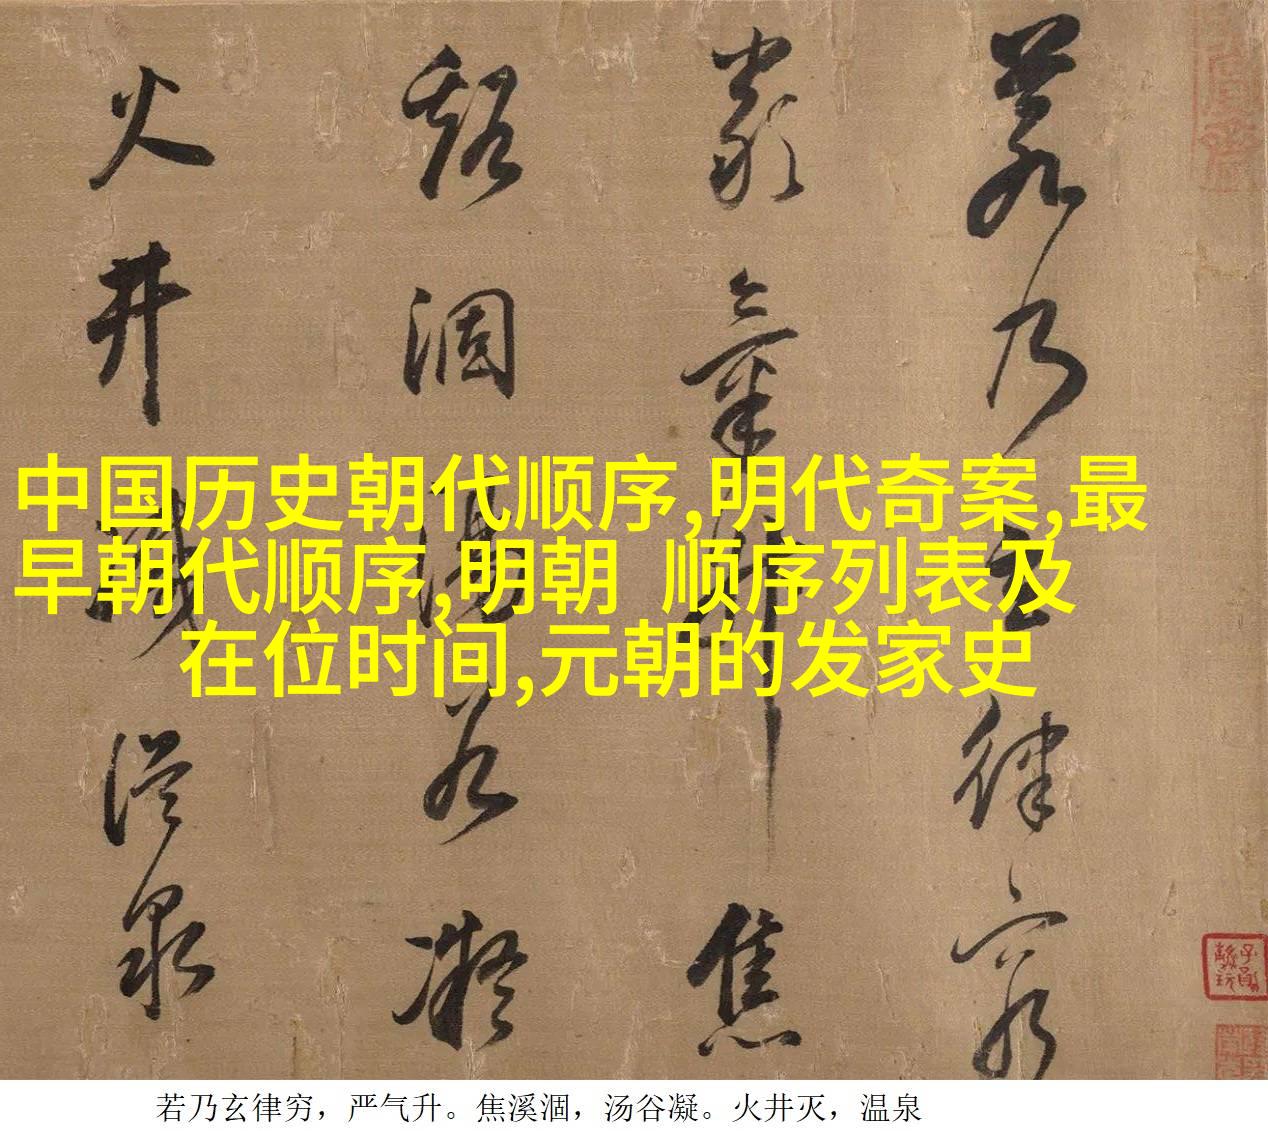 若乃玄律窮
嚴氣升焦
谿涸湯谷凝
火井滅温泉
中国历史朝代顺序,明代奇案,最
早朝代顺序,明朝 顺序列表及
在位时间,元朝的发家史
若乃玄律穷，严气升。焦溪涸，汤谷凝。火井灭，温泉